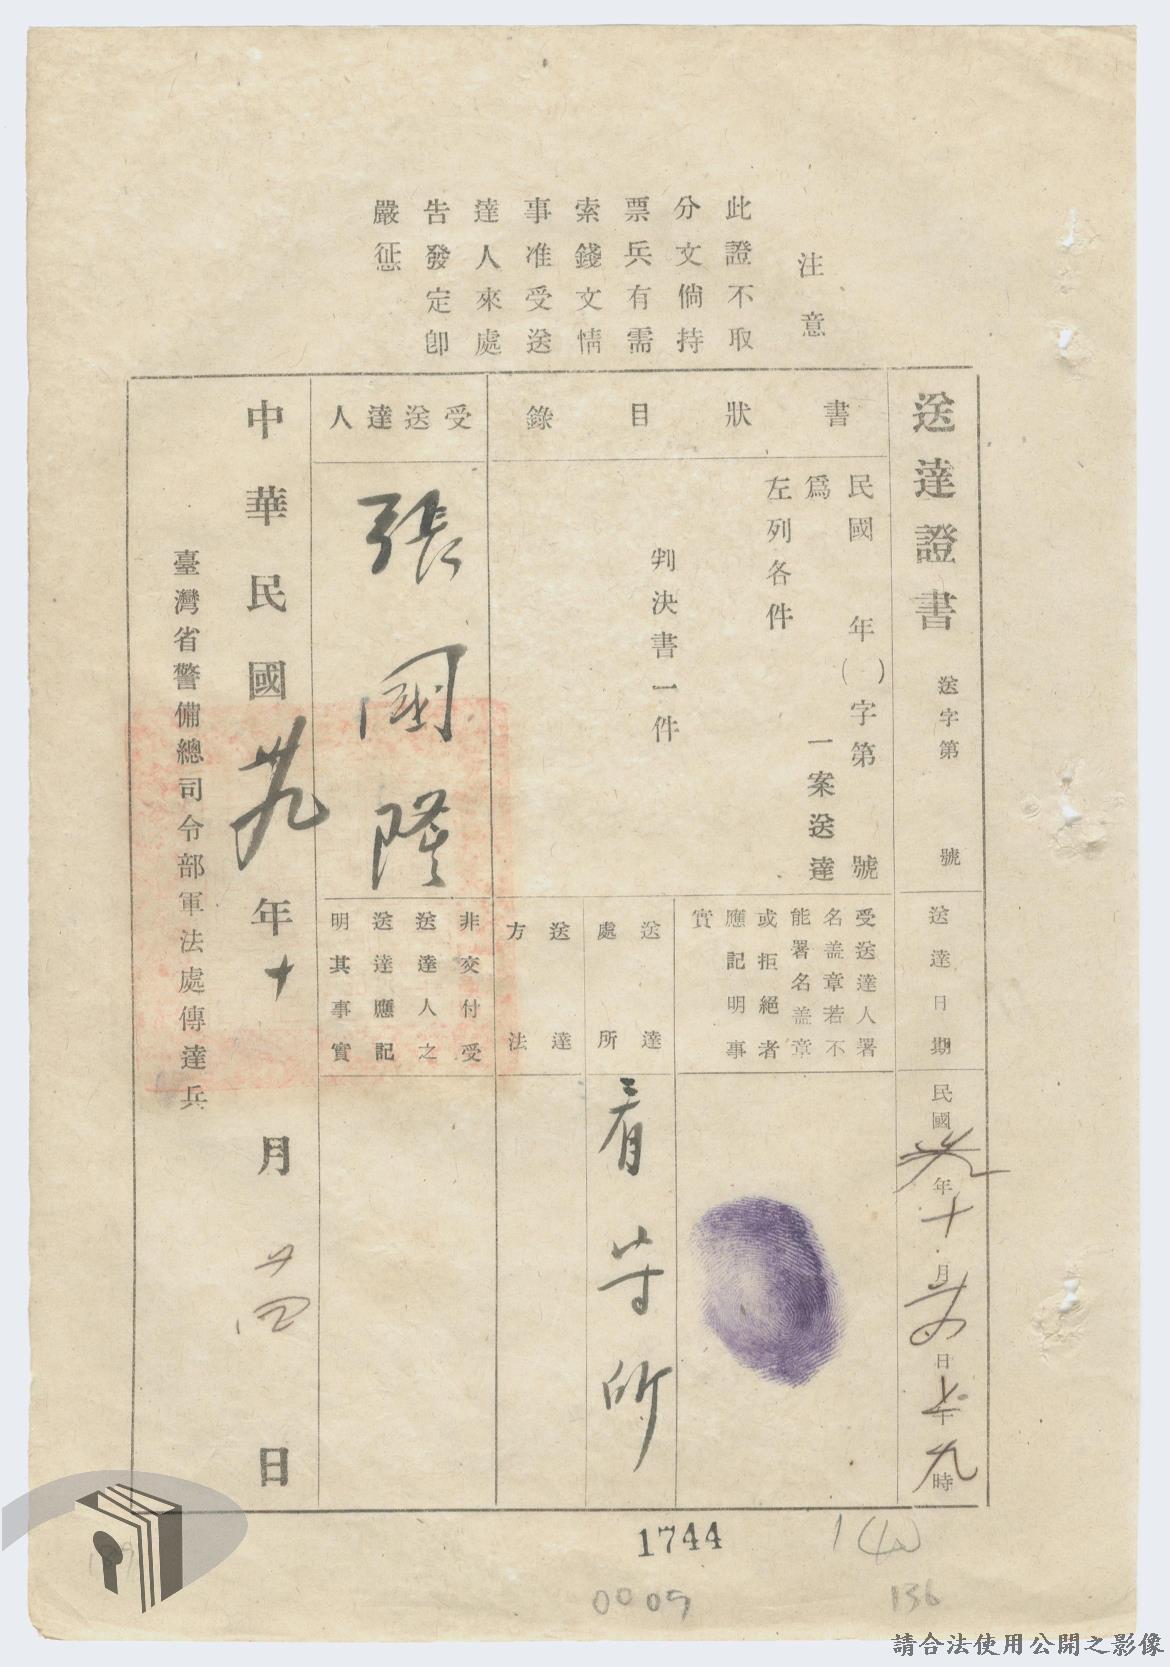 注意
此證不取
分文倘持
票兵有需
索錢文情
事准受送
達人來處
告發定卽
嚴懲
送達證書
送字第　號
送達日期
民國卅九年十月廿四日上午九時
書狀目錄
民國　年（　）字第　號
爲　一案送達
左列各件
判決書一件
受送達人署
名盖章若不
能署名盖章
或拒絕者
應記明事
實
送達
處所
看守所
送達
方法
受送達人
張國隆
非交付受
送達人之
送達應記
明其事實
中華民國卅九年十月廿四日
臺灣省警備總司令部軍法處傳達兵
1744
0009
136
請合法使用公開之影像